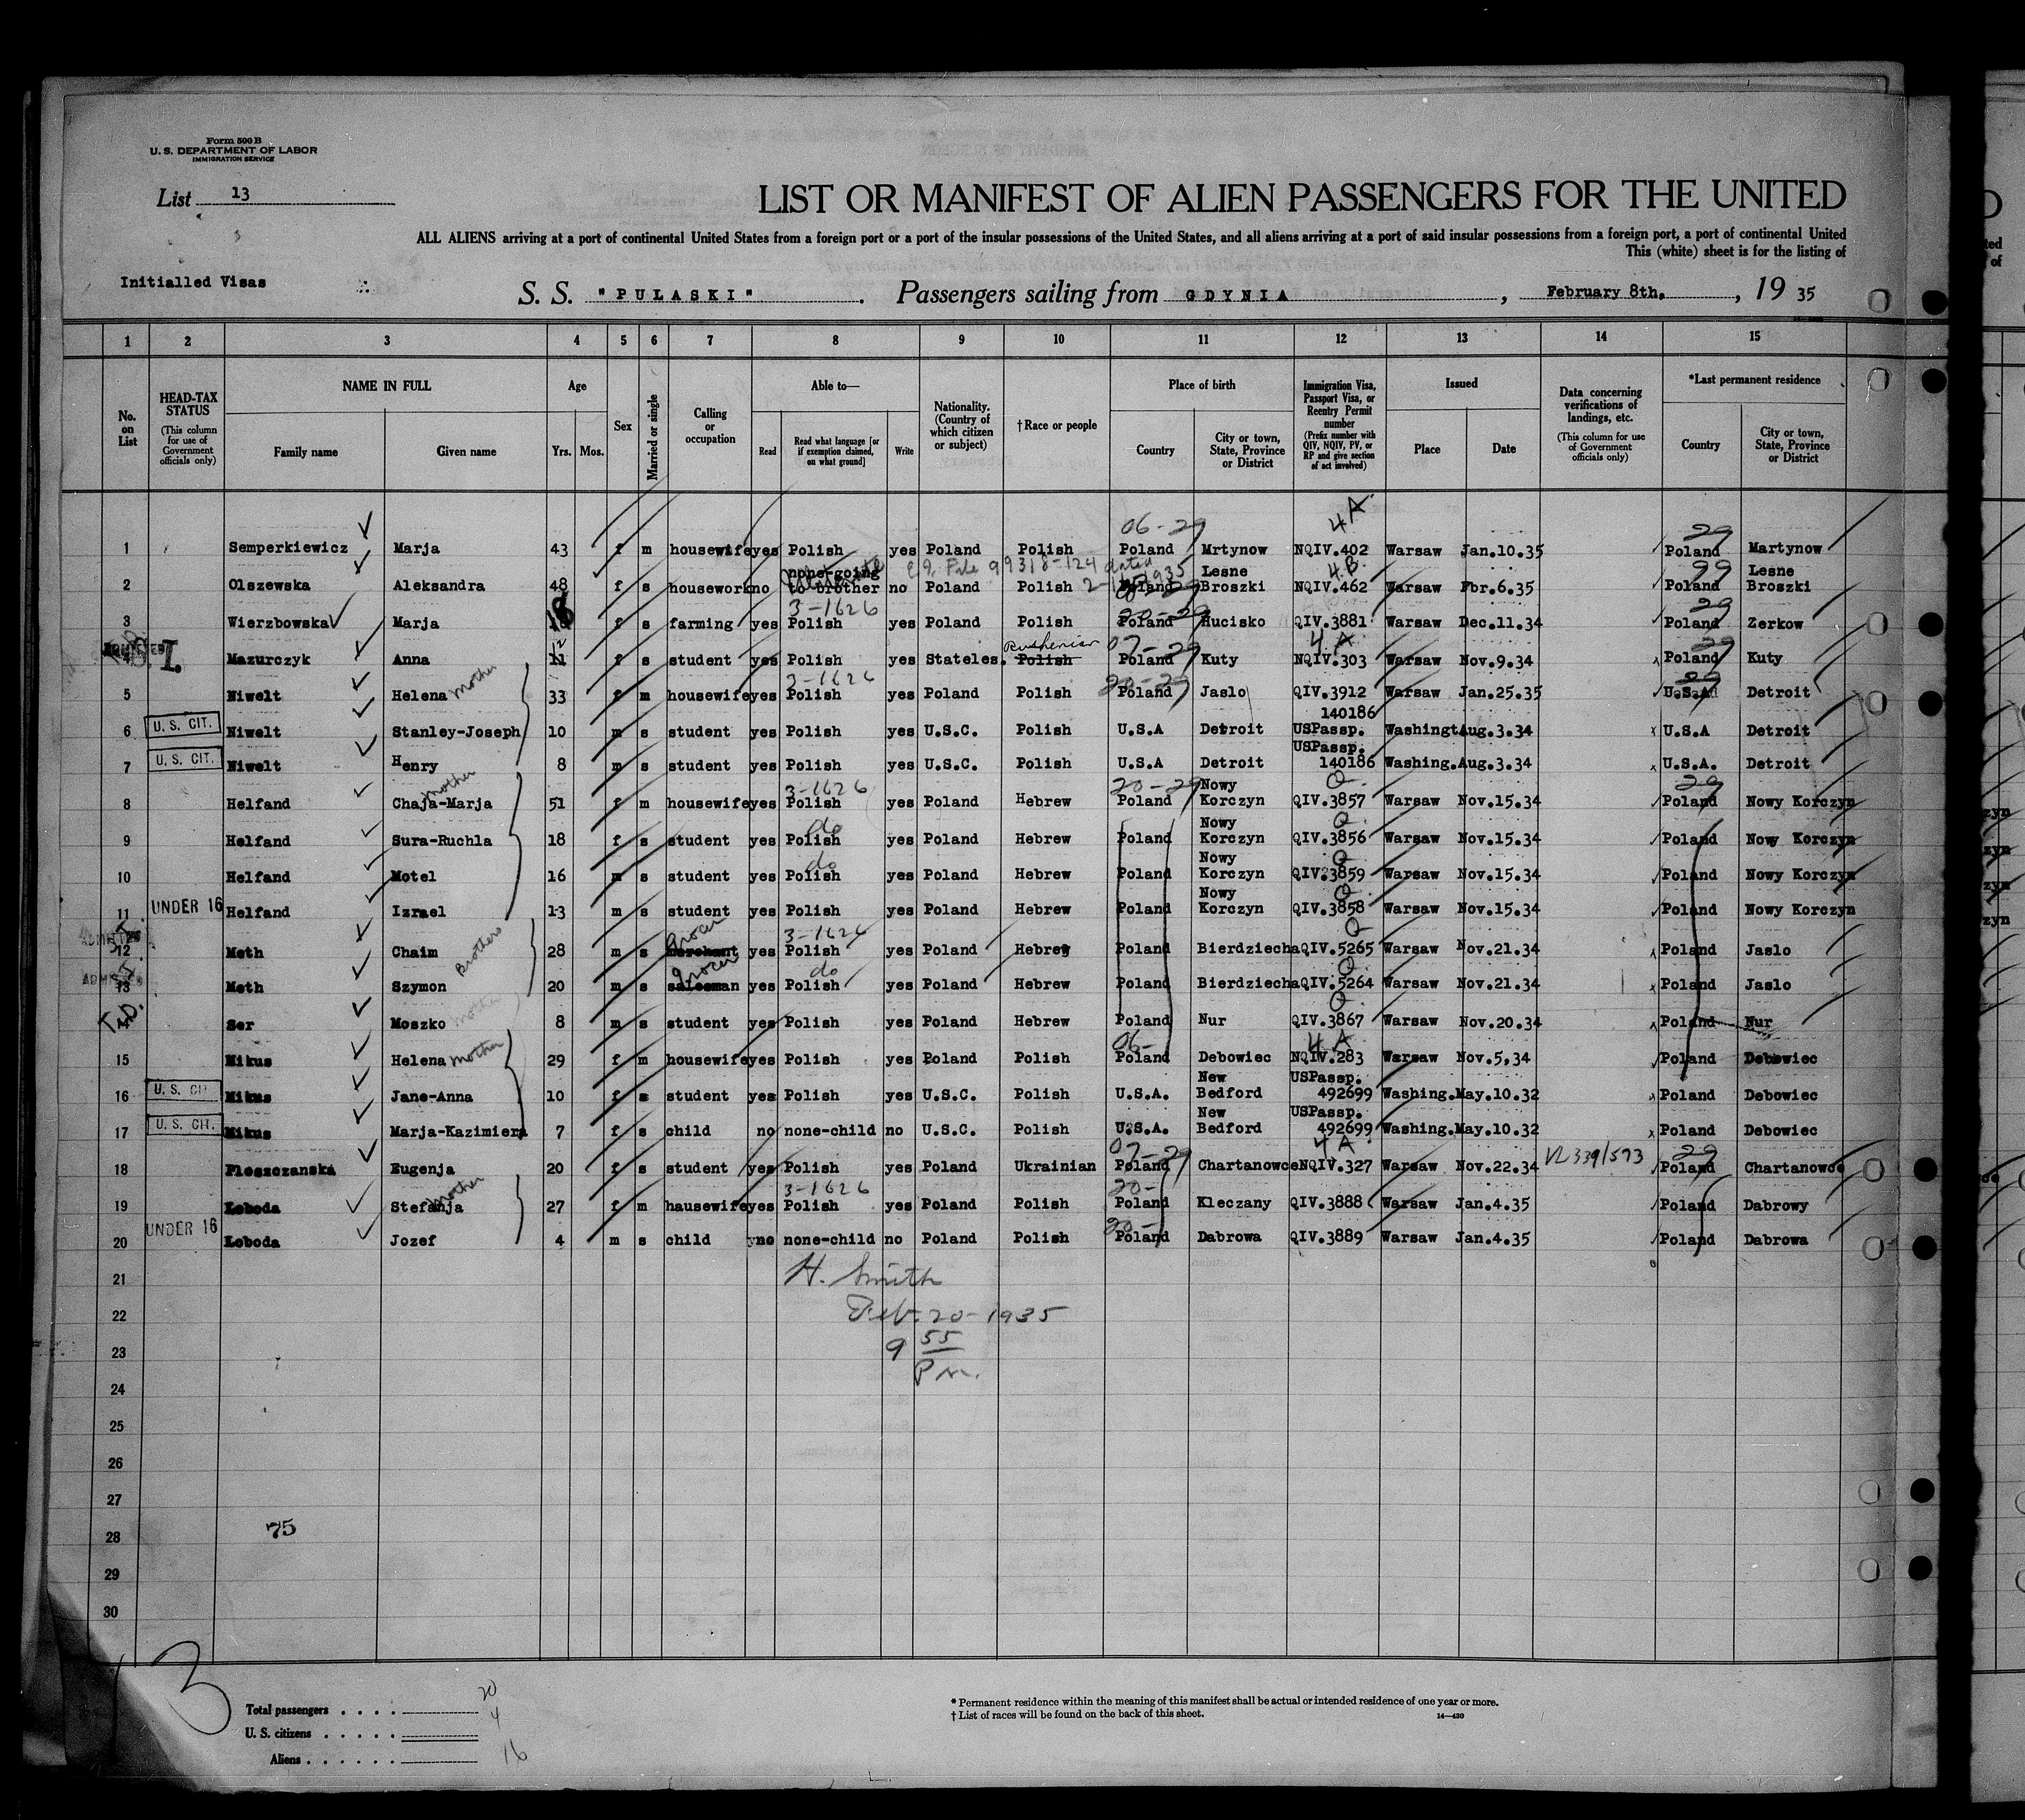 Form 500 B
U. S. DEPARTMENT OF LABOR
IMMIGRATION SERVICE
List 13
LIST OR MANIFEST OF ALIEN PASSENGERS FOR THE UNITED
ALL ALIENS arriving at a port of continental United States from a foreign port or a port of the insular possessions of the United States, and all aliens arriving at a port of said insular possessions from a foreign port, a port of continental United
This (white) sheet is for the listing of
Initialled Visas
S. S. "PULASKI" . Passengers sailing from GDYNIA , February 8th, , 19 35
1 2 3 4 5 6 7 8 9 10 11 12 13 14 15
No. on List
HEAD-TAX STATUS (This column for use of Government officials only)
NAME IN FULL Family name Given name
Age Yrs. Mos.
Sex
Married or single
Calling or occupation
Able to— Read Read what language [or if exemption claimed, on what ground] Write
Nationality. (Country of which citizen or subject)
†Race or people
Place of birth Country City or town, State, Province or District
Immigration Visa, Passport Visa, or Reentry Permit number (Prefix number with QIV, NQIV, PV, or RP and give section of act involved)
Issued Place Date
Data concerning verifications of landings, etc. (This column for use of Government officials only)
*Last permanent residence Country City or town, State, Province or District
06-29 4A 29
1 Semperkiewicz Marja 43 f m housewife yes Polish yes Poland Polish Poland Mrtynow NQIV.402 Warsaw Jan.10.35 Poland Martynow
none-going Lesne 4B 99 Lesne
2 Olszewska Aleksandra 48 f s housework no to brother no Poland Polish Poland Broszki NQIV.462 Warsaw Fbr.6.35 Poland Broszki
3-1626 20-29 29
3 Wierzbowska Marja 18 f s farming yes Polish yes Poland Polish Poland Hucisko QIV.3881 Warsaw Dec.11.34 Poland Zerkow
Ruthenian 07-29 4A 29
4 Mazurczyk Anna 11 f s student yes Polish yes Stateles. Polish Poland Kuty NQIV.303 Warsaw Nov.9.34 Poland Kuty
mother 3-1626 20-29 29
5 Niwelt Helena 33 f m housewife yes Polish yes Poland Polish Poland Jaslo QIV.3912 Warsaw Jan.25.35 U.S.A Detroit
140186
6 U. S. CIT. Niwelt Stanley-Joseph 10 m s student yes Polish yes U.S.C. Polish U.S.A Detroit USPassp. Washingt Aug.3.34 U.S.A Detroit
USPassp.
7 U. S. CIT. Niwelt Henry 8 m s student yes Polish yes U.S.C. Polish U.S.A Detroit 140186 Washing. Aug.3.34 U.S.A. Detroit
mother 3-1626 20-29 Nowy Q 29
8 Helfand Chaja-Marja 51 f m housewife yes Polish yes Poland Hebrew Poland Korczyn QIV.3857 Warsaw Nov.15.34 Poland Nowy Korczyn
do Nowy Q
9 Helfand Sura-Ruchla 18 f s student yes Polish yes Poland Hebrew Poland Korczyn QIV.3856 Warsaw Nov.15.34 Poland Nowy Korczyn
do Nowy Q
10 Helfand Motel 16 m s student yes Polish yes Poland Hebrew Poland Korczyn QIV.3859 Warsaw Nov.15.34 Poland Nowy Korczyn
Nowy Q
11 UNDER 16 Helfand Izrael 13 m s student yes Polish yes Poland Hebrew Poland Korczyn QIV.3858 Warsaw Nov.15.34 Poland Nowy Korczyn
Brothers Grocer 3-1626 Q
12 Meth Chaim 28 m s merchant yes Polish yes Poland Hebrew Poland Bierdziecha QIV.5265 Warsaw Nov.21.34 Poland Jaslo
grocer do Q
13 Meth Szymon 20 m s salesman yes Polish yes Poland Hebrew Poland Bierdziecha QIV.5264 Warsaw Nov.21.34 Poland Jaslo
Q
14 Ser Moszko 8 m s student yes Polish yes Poland Hebrew Poland Nur QIV.3867 Warsaw Nov.20.34 Poland Nur
mother 06- 4A
15 Mikus Helena 29 f m housewife yes Polish yes Poland Polish Poland Debowiec NQIV.283 Warsaw Nov.5,34 Poland Debowiec
New USPassp.
16 U. S. CIT. Mikus Jane-Anna 10 f s student yes Polish yes U.S.C. Polish U.S.A. Bedford 492699 Washing. May.10.32 Poland Debowiec
New USPassp.
17 U. S. CIT. Mikus Marja-Kazimiera 7 f s child no none-child no U.S.C. Polish U.S.A. Bedford 492699 Washing. May.10.32 Poland Debowiec
07-29 4A 29
18 Pleszczanska Eugenja 20 f s student yes Polish yes Poland Ukrainian Poland Chartanowce NQIV.327 Warsaw Nov.22.34 VL339/573 Poland Chartanowce
mother 3-1626 20-
19 Loboda Stefanja 27 f m hausewife yes Polish yes Poland Polish Poland Kleczany QIV.3888 Warsaw Jan.4.35 Poland Dabrowy
20-
20 UNDER 16 Loboda Jozef 4 m s child no none-child no Poland Polish Poland Dabrowa QIV.3889 Warsaw Jan.4.35 Poland Dabrowa
21 H. Smith
22 Feb-20-1935
23 9 55 Pm.
24
25
26
27
28 75
29
30
13
Total passengers . . . . 20
U. S. citizens . . . . . 4
Aliens . . . . . . 16
* Permanent residence within the meaning of this manifest shall be actual or intended residence of one year or more.
† List of races will be found on the back of this sheet.
14—430